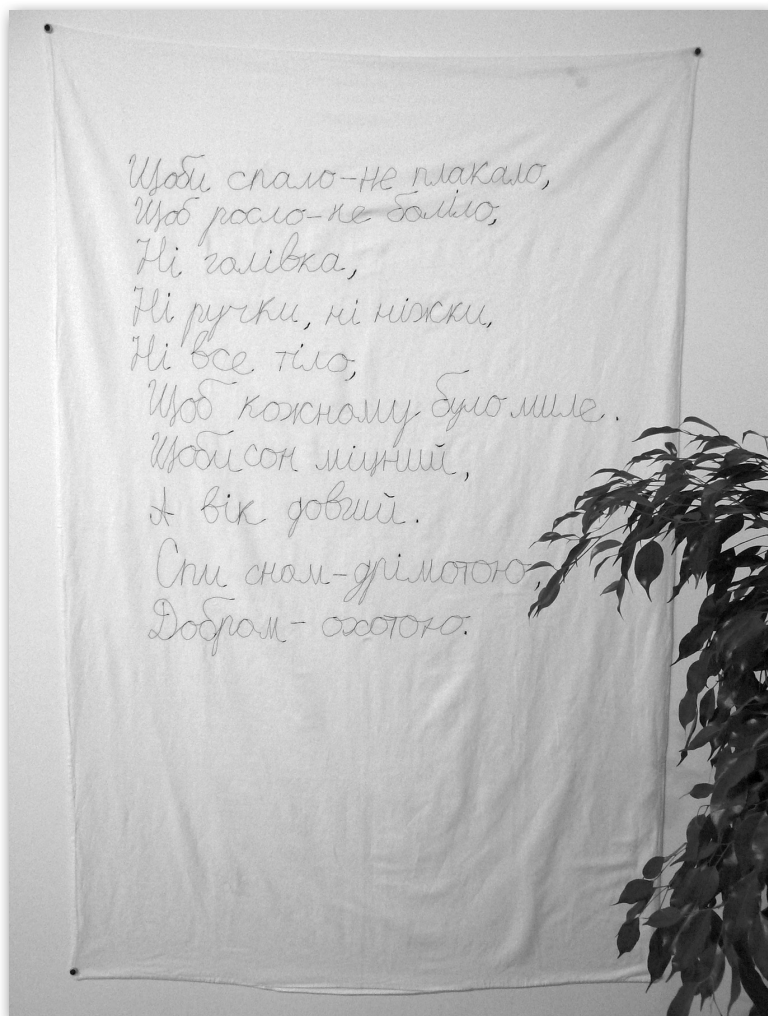 Щоби спало-не плакало,
Щоб росло-не боліло,
Ні голівка,
Ні ручки, ні ніжки,
Ні все тіло,
Щоб кожному було миле.
Щоби сон міцний,
А вік довгий.
Спи сном-дрімотою,
Добром- охотою.